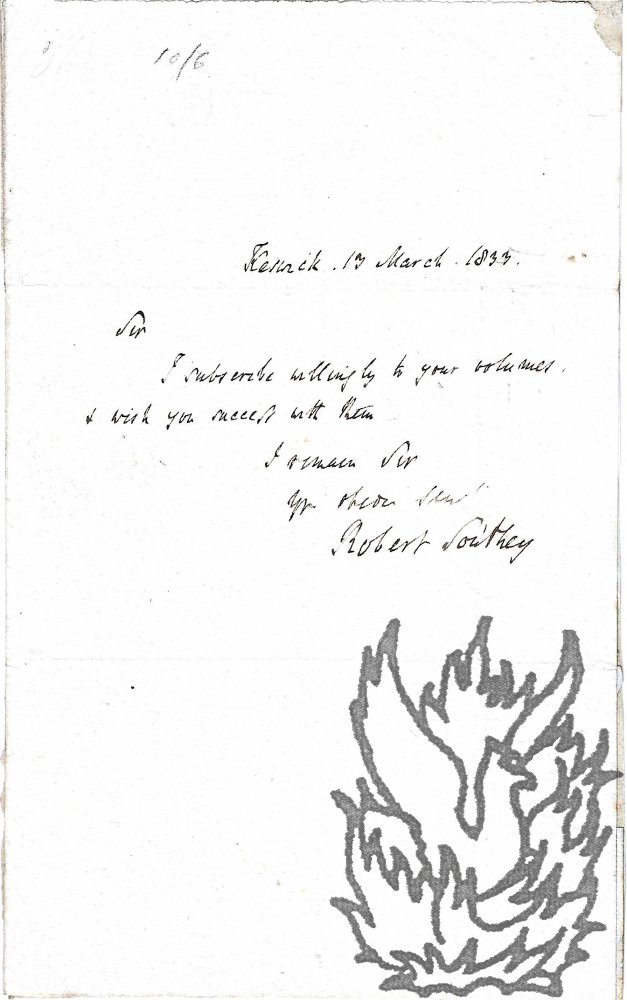 10/6
Keswick . 13 March . 1833.
Sir
I subscribe willingly to your volumes,
& wish you success with them
I remain Sir
Yr obedt Servt
Robert Southey